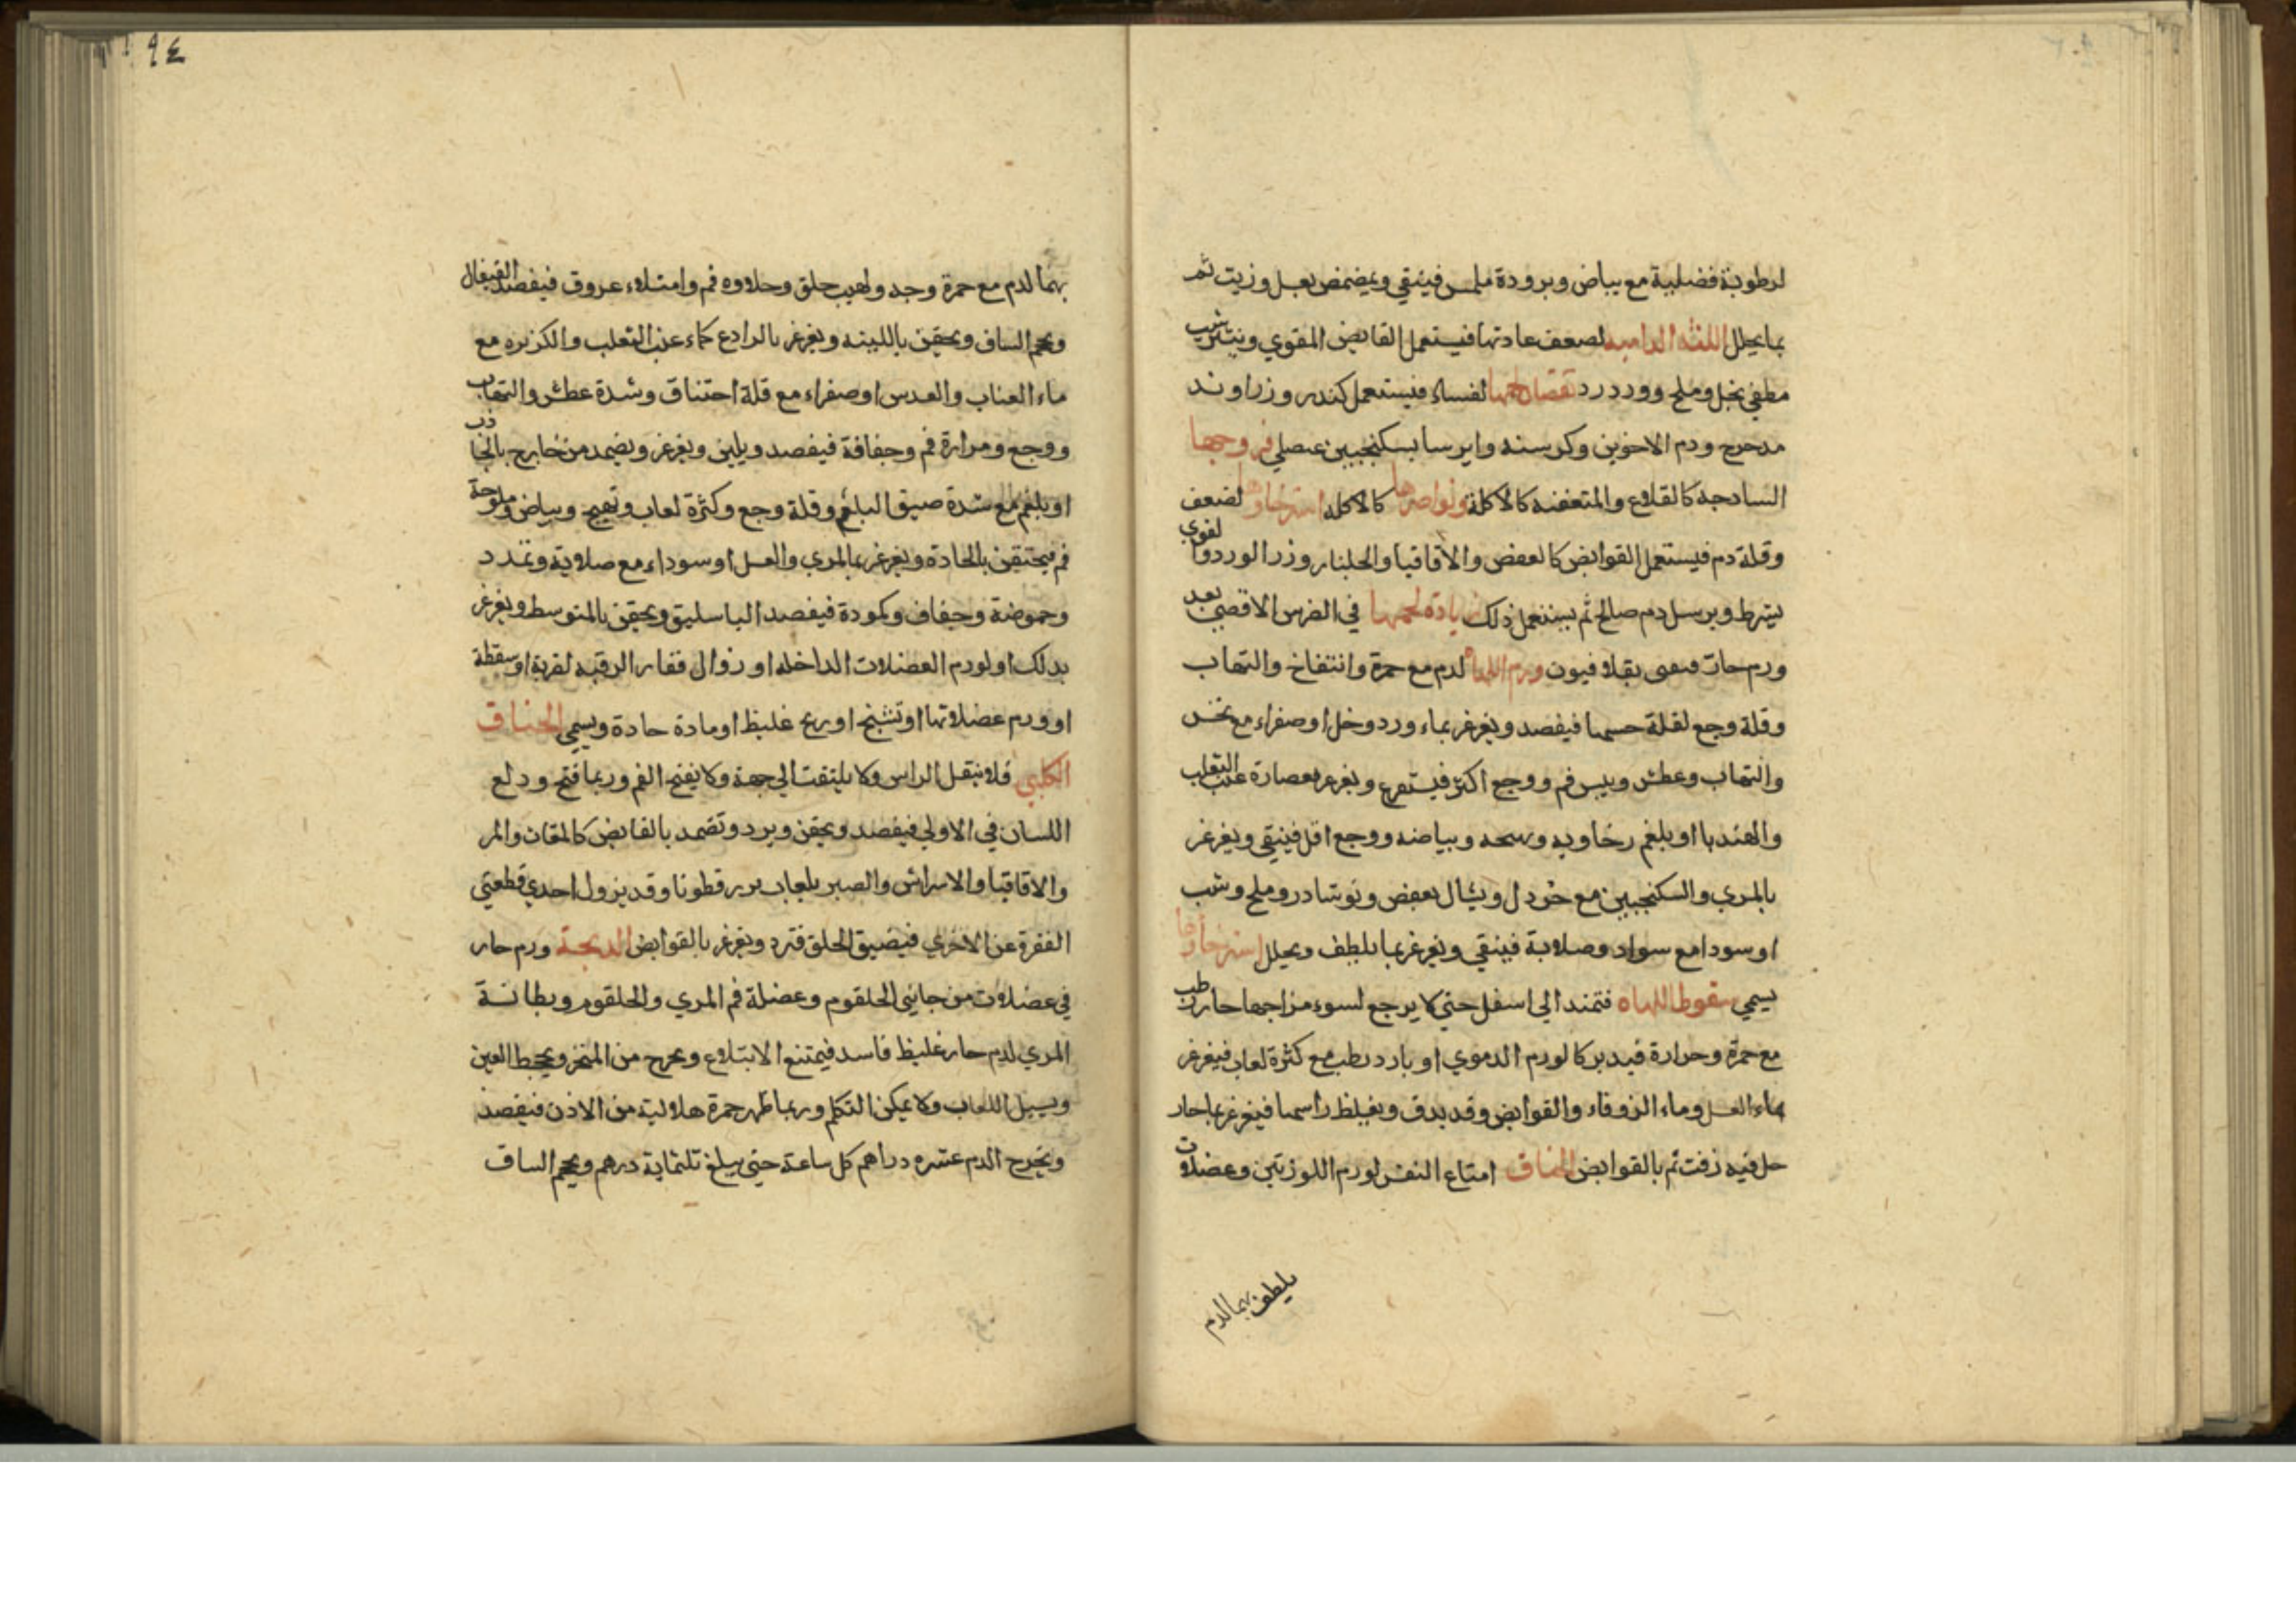 لرطوبة فضلية مع بياض وبرودة ملمس فينقي ويمضمض بعسل وزيت ثم
بما يحلل اللثه الداميه لضعف عادتها فيستعمل القابض المقوي وينثر شب
مطفي بخل وملح وورد رد نقصان لحمها لفساد فيستعمل كندر وزراوند
مدحرج ودم الاخوين وكرسنه وايرسا بسكنجبين عنصلي قروحها
الساذجه كالقلاع والمتعفنه كالاكلة ونواصرها كالاكله استرخاوها لضعف
وقلة دم فيستعمل القوابض كالعفص والاقاقيا والجلنار وزر الورد والقوي
يشرط ويرسل دم صالح ثم يستعمل ذلك زيادة لحمها في الضرس الاقصي بعد
ورم حار بقلافيون ورم اللهاه لدم مع حمرة وانتفاخ والتهاب
وقلة وجع لقلة حسها فيفصد ويغرغر بماء ورد وخل او صفراء مع نخس
والتهاب وعطش ويبس فم ووجع اكثر فيستفرغ ويغرغر بعصارة عنب الثعلب
والهندبا او بلغم رخاويه وبياضه ووجع اقل فينقي ويغرغر
بالمري والسكنجبين مع خردل ويشال بعفص ونوشادر وملح وشب
او سودا مع سواد وصلابة فينقي ويغرغر بما يلطف ويحلل استرخاوها
يسمي سقوط اللهاه فتمتد الي اسفل حتي لا يرجع لسوء مزاجها حار رطب
مع حمرة وحرارة فيدبر كالورم الدموي او بارد رطب مع كثرة لعاب فيغرغر
بماء العسل وماء الزوفاء والقوابض وقد يدق ويغلظ راسها فيغرغر بما حار
حل فيه زفت ثم بالقوابض الخناق امتاع النفس لورم اللوزتين وعضلات
يلطف بهما الدم
٩٤
بهما لدم مع حمرة وجه ولهيب حلق وحلاوه فم وامتلاء عروق فيفصد القيفال
ويحجم الساق ويحقن باللينه ويغرغر بالرادع كماء عنب الثعلب والكزبره مع
ماء العناب والعدس او صفراء مع قلة اختناق وشدة عطش والتهاب
ووجع ومرارة فم وجفافة فيفصد ويلين ويغرغر ويضمد من خارج بالجاذب
او بلغم مع شدة ضيق البلغم وقلة وجع وكثرة لعاب وتهيج وبياض وملوحة
فم فيحتقن بالحادة ويغرغر بالمري والعسل او سوداء مع صلابة وتمدد
وحموضة وجفاف وكمودة فيفصد الباسليق ويحقن بالمتوسط ويغرغر
بدلك او لورم العضلات الداخله او زوال فقار الرقبه لضربة او سقطة
او ورم عضلاتها او تشنج او ريح غليظ او مادة حادة ويسمي الخناق
الكلبي فلا ينتقل الراس ولا يلتفت الي جهة ولا يفتح الفم وربما فتح ودلع
اللسان في الاولي فيفصد ويحقن ويرد وتضمد بالقابض كالمقات والمر
والاقاقيا والاسراش والصبر بلعاب بزر قطونا وقد يزول احدي قطعتي
الفقرة عن الاخري فيضيق الحلق فترد ويغرغر بالقوابض الذبحة ورم حار
في عضلات من جانبي الحلقوم وعضلة فم المري والحلقوم وبطانة
المري لدم حار غليظ فاسد فيمتنع الابتلاع ويخرج من المنخر ويجحظ العين
ويسيل اللعاب ولا يمكن التكلم وربما ظهر حمرة هلالية من الاذن فيفصد
ويخرج الدم عشره دراهم كل ساعة حتي يبلغ ثلثماية درهم ويحجم الساق